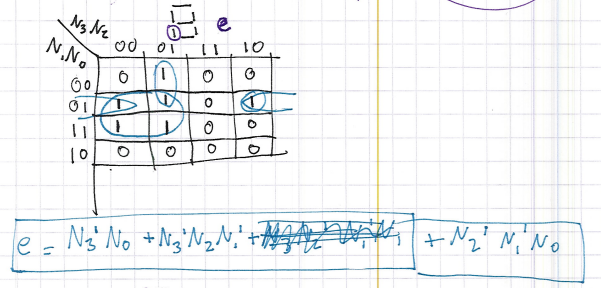 N₃N₂
e
N₁N₀ 00 01 11 10
00 0 1 0 0
01 1 1 0 1
11 1 1 0 0
10 0 0 0 0
e = N₃'N₀ + N₃'N₂N₁' + + N₂'N₁'N₀